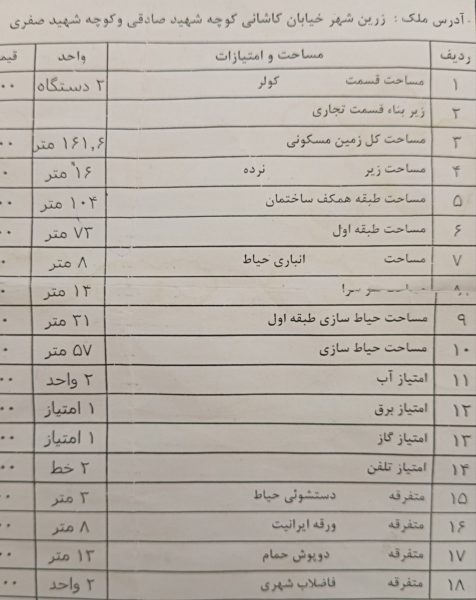 آدرس ملک : زرین شهر خیابان کاشانی کوچه شهید صادقی و کوچه شهید صفری
ردیف مساحت و امتیازات واحد
۱ مساحت قسمت کولر ۲ دستگاه
۲ زیر بناه قسمت تجاری
۳ مساحت کل زمین مسکونی ۱۶۱,۶ متر
۴ مساحت زیر نرده ۱۶ متر
۵ مساحت طبقه همکف ساختمان ۱۰۴ متر
۶ مساحت طبقه اول ۷۳ متر
۷ مساحت انباری حیاط ۸ متر
۸ ۱۴ متر
۹ مساحت حیاط سازی طبقه اول ۳۱ متر
۱۰ مساحت حیاط سازی ۵۷ متر
۱۱ امتیاز آب ۲ واحد
۱۲ امتیاز برق ۱ امتیاز
۱۳ امتیاز گاز ۱ امتیاز
۱۴ امتیاز تلفن ۲ خط
۱۵ متفرقه دستشوئی حیاط ۳ متر
۱۶ متفرقه ورقه ایرانیت ۸ متر
۱۷ متفرقه دوپوش حمام ۱۳ متر
۱۸ متفرقه فاضلاب شهری ۲ واحد